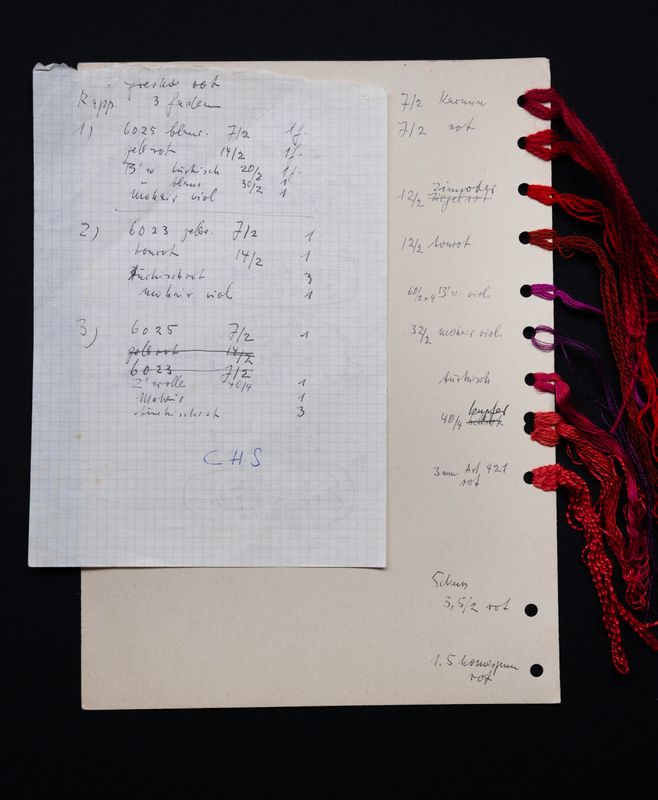 rot
Rapp. 3 Faden
1) 6025 blaur. 7/2 1 f.
gelbrot 14/2 1 f.
B'w türkisch 20/2 1 f.
" blau 30/2 1
Mohair viol 1
2) 6023 gelbr. 7/2 1
tonrot 14/2 1
türkischrot 3
Mohair viol 1
3) 6025 7/2 1
gelbrot 14/2
6023 7/2
Z'wolle 40/4 1
Mohair 1
türkischrot 3
CHS
7/2 Karmin
7/2 rot
Zinnober
12/2 ziegelrot
12/2 tonrot
60/2×4 B'w. viol.
32/2 Mohair viol.
türkisch
kupfer
40/4
3 mm Art. 421
rot
Schuss
3,5/2 rot
1.5 homespun
rot